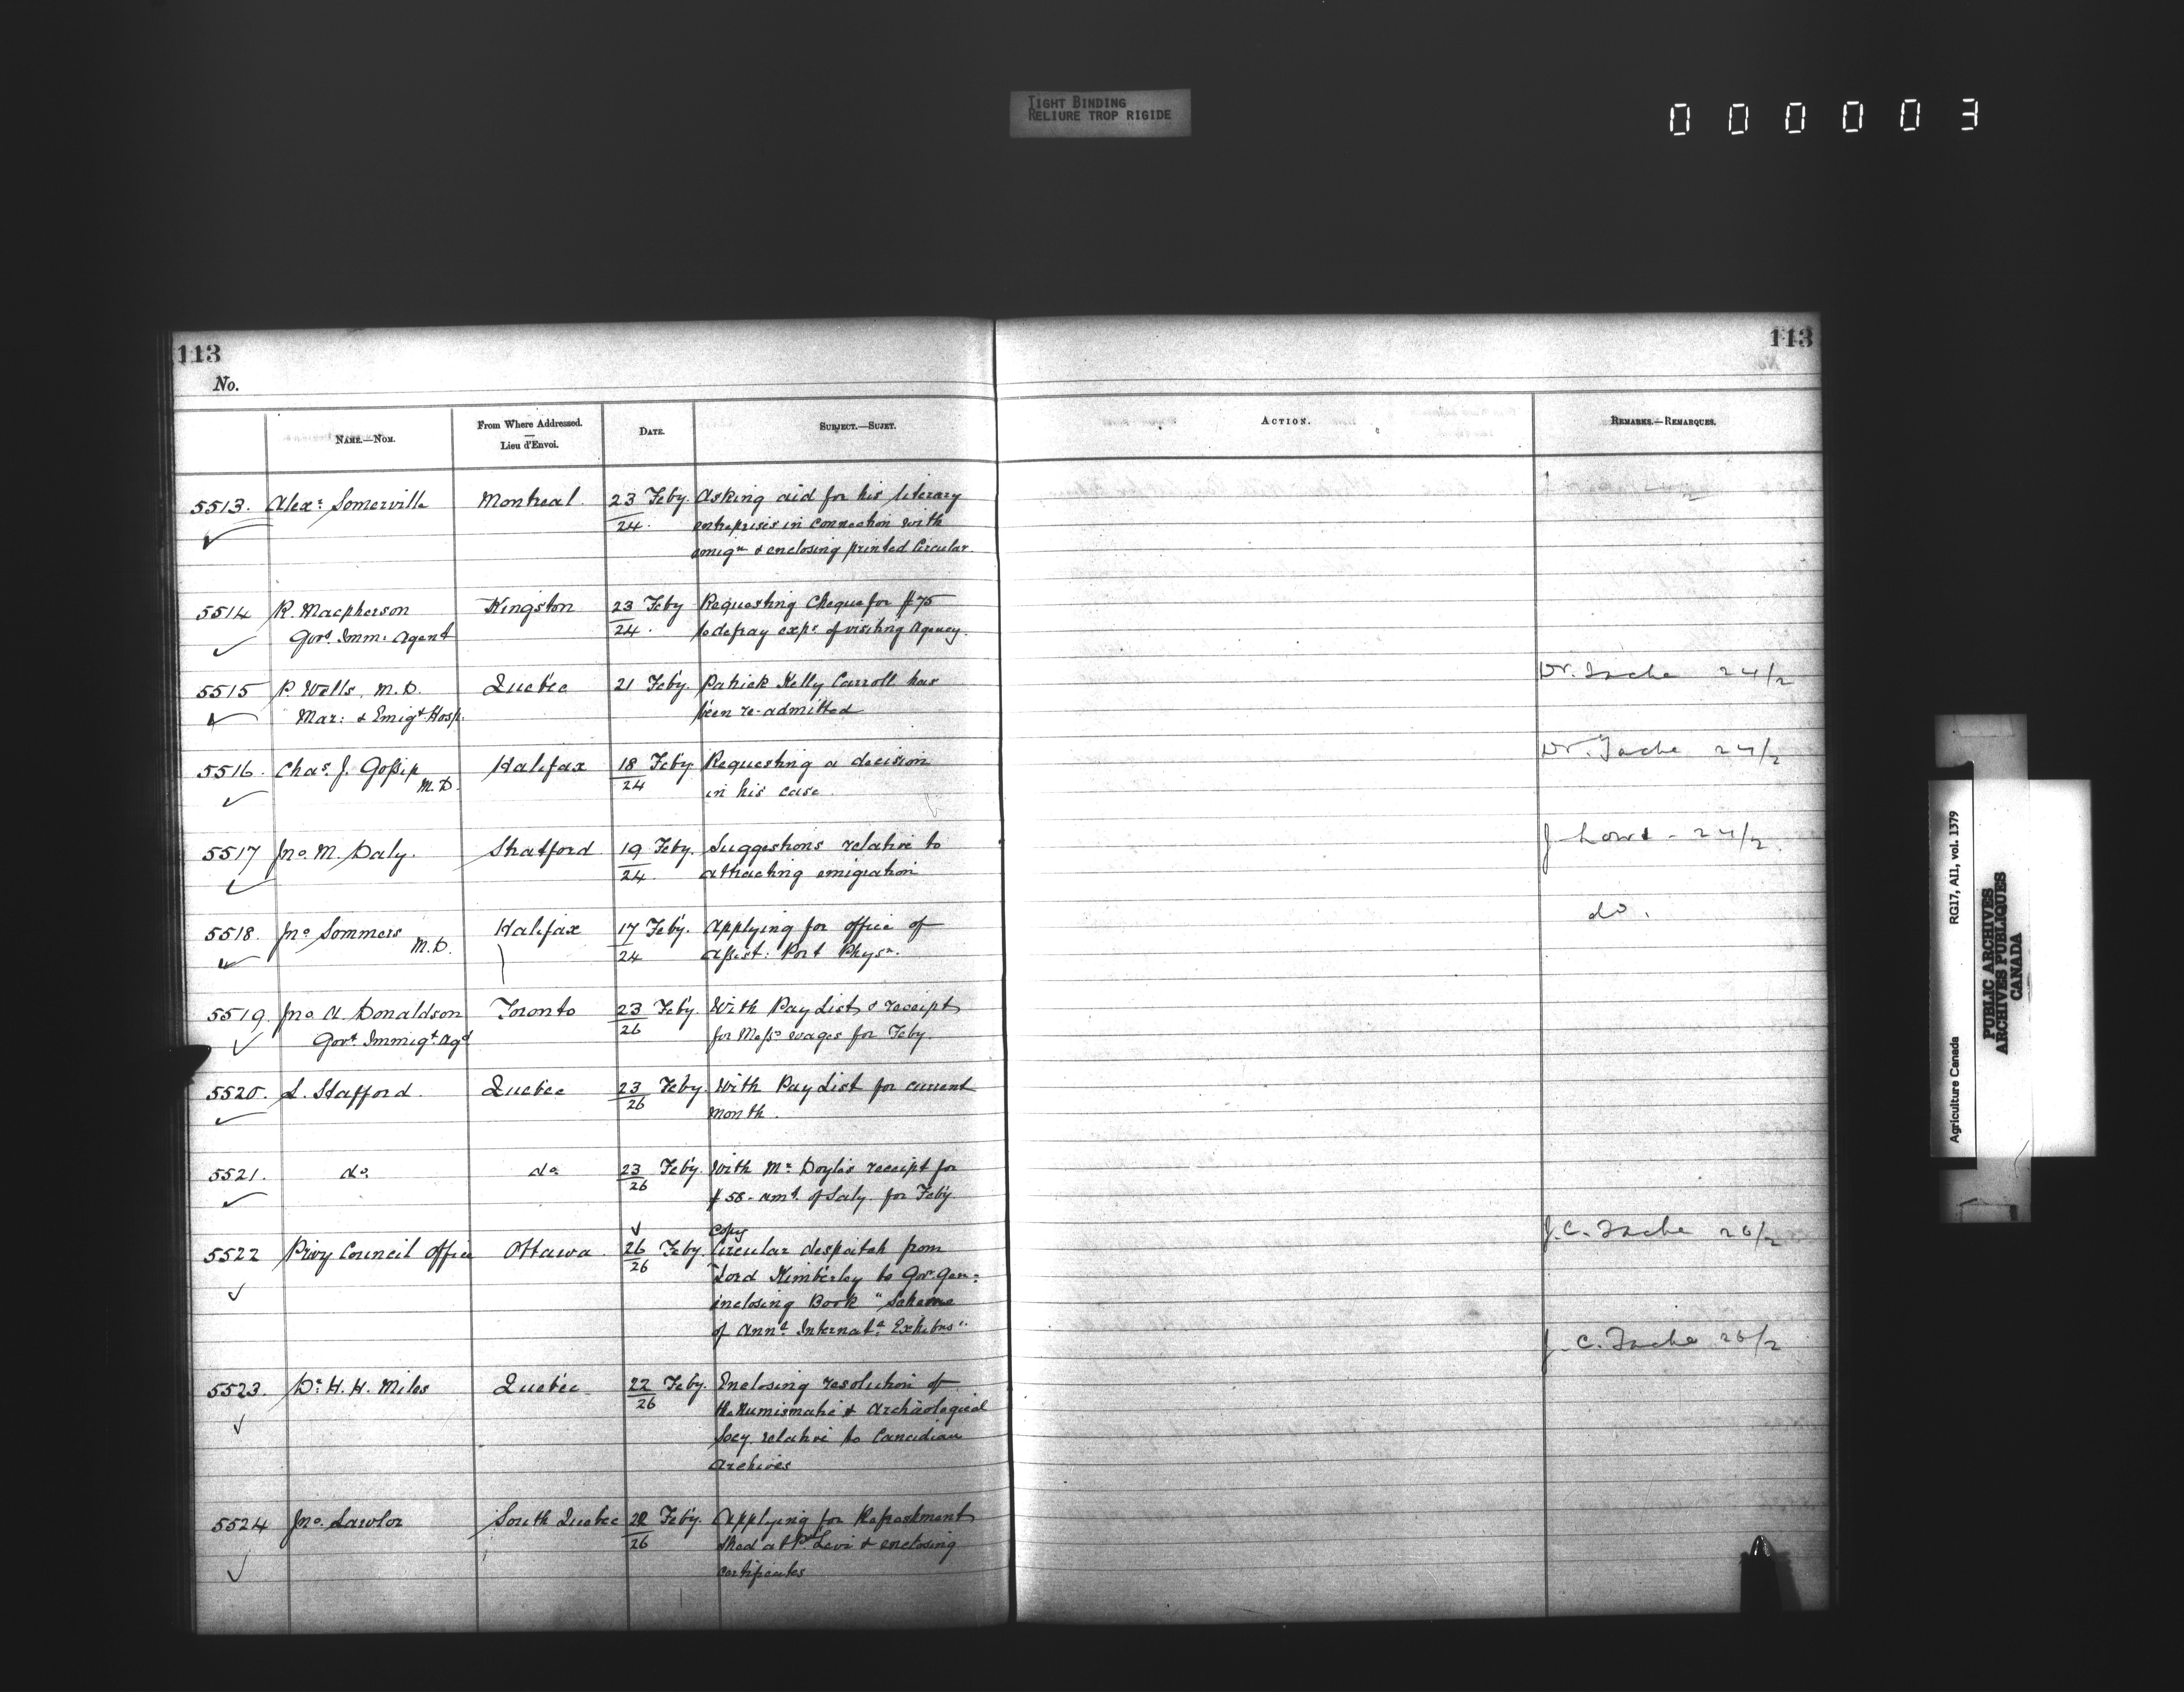 TIGHT BINDING
RELIURE TROP RIGIDE
000003
113
113
No.
NAME.—NOM.
From Where Addressed.
—
Lieu d'Envoi.
DATE.
SUBJECT.—SUJET.
ACTION.
REMARKS.—REMARQUES.
5513. Alexr Somerville Montreal. 23 Feby. Asking aid for his literary
24. entreprises in connection with
emign & enclosing printed Circular.
5514 R. Macpherson Kingston 23 Feby Requesting Cheque for $75
Govt Imm: Agent 24. to defray exps of visiting Agency.
5515 P. Wells, M.D. Quebec 21 Feby. Patrick Kelly Carroll has Dr. Tache 24/2
Mar: & Emigt Hosp. been re-admitted
5516. Chas. J. Gossip Halifax 18 Feby Requesting a decision Dr. Tache 24/2
M.D. 24 in his case.
5517 Jno. M. Daly. Stratford 19 Feby. Suggestions relative to J. Lowe - 24/2.
24 attracting emigration
5518. Jno Sommers Halifax 17 Feby. Applying for office of do.
M.D. 24 Assist: Port Physn.
5519. Jno A. Donaldson Toronto 23 Feby. With Pay List & receipt
Govt Immigt Agt 26 for Messr wages for Feby.
5520. L. Stafford. Quebec 23 Feby. With Pay List for current
26 month.
5521. do do 23 Feby. With Mr Doyle's receipt for
26 $58- amt. of Saly. for Feby
copy
5522 Privy Council Office Ottawa. 26 Feby. Circular despatch from J.C. Tache 26/2
26 Lord Kimberley to Govr Gen:
inclosing Book "Scheme
of Annl Internatl Exhibns"
5523. Dr H. H. Miles Quebec 22 Feby. Enclosing resolution of J.C. Tache 26/2
26 the Numismatic & Archæological
Socy. relative to Canadian
Archives
5524 Jno. Lawlor South Quebec 22 Feby. Applying for Refreshment
26 shed at Pt Levi & enclosing
certificates
Agriculture Canada RG17, AII, vol. 1379
PUBLIC ARCHIVES
ARCHIVES PUBLIQUES
CANADA